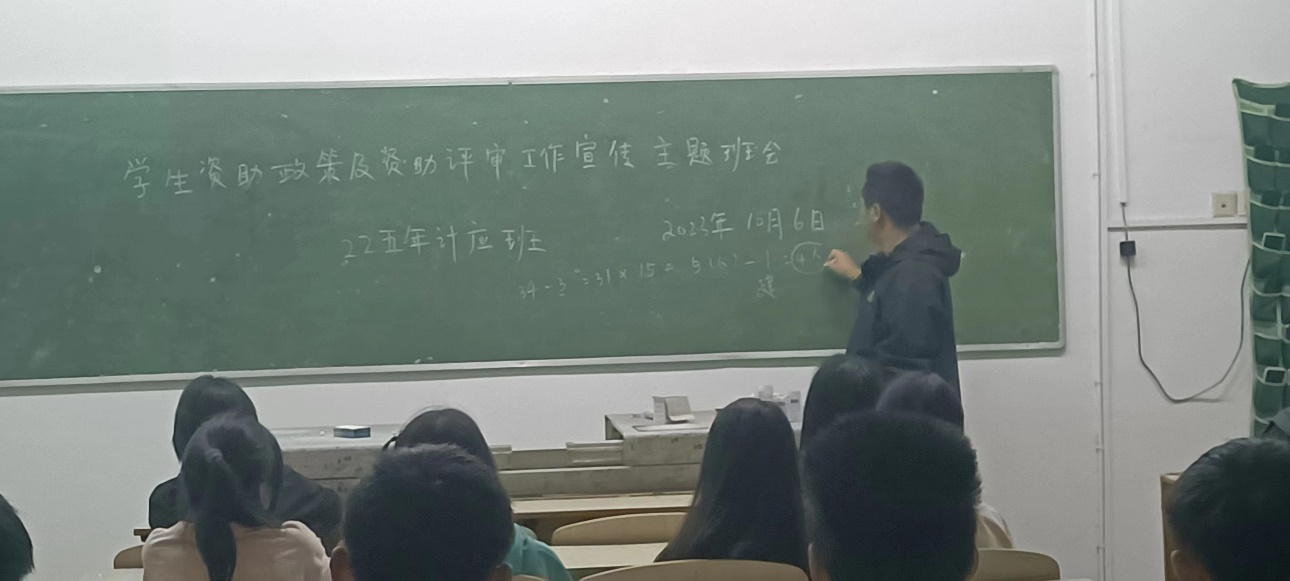 学生资助政策及资助评审工作宣传主题班会
22五年计应班 2023年10月6日
34-3=31×15= 5(人)-1=4人
建